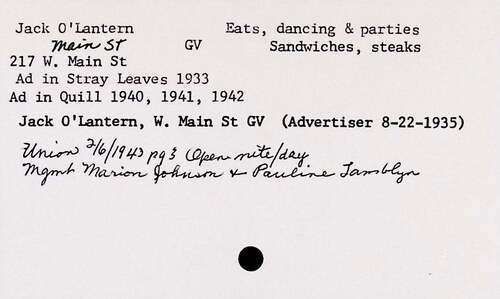 Jack O'Lantern Eats, dancing & parties
Main St GV Sandwiches, steaks
217 W. Main St
Ad in Stray Leaves 1933
Ad in Quill 1940, 1941, 1942
Jack O'Lantern, W. Main St GV (Advertiser 8-22-1935)
Union 2/6/1943 pg 3 Open nite/day
Mgmt Marion Johnson & Pauline Tamblyn